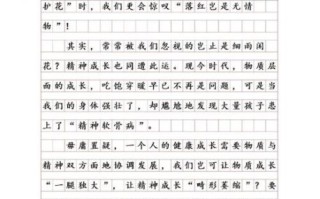 护花”时，我们更会惊叹“落红岂是无情
物”！
其实，常常被我们忽视的岂止是细雨闲
花？精神成长也同遭此运。现今时代，物质层
面的成长，吃饱穿暖早已不再是问题，可是当
我们的身体强壮了，却尴尬地发现大量孩子患
上了“精神软骨病”。
毋庸置疑，一个人的健康成长需要物质与
精神双方面地协调发展，我们岂可让物质成长
“一腿独大”，让精神成长“畸形萎缩”？要